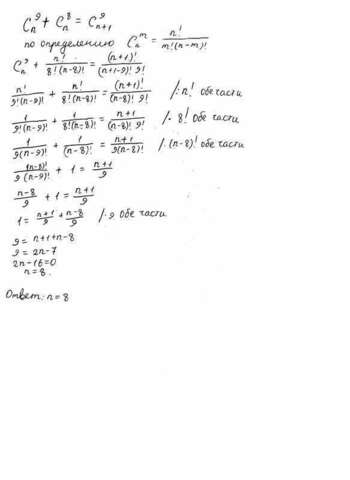 C_n^9 + C_n^8 = C_{n+1}^9
по определению C_n^m = n! / m!(n-m)!
C_n^9 + n! / 8!(n-8)! = (n+1)! / (n+1-9)! 9!
n! / 9!(n-9)! + n! / 8!(n-8)! = (n+1)! / (n-8)! 9! /: n! обе части
1 / 9!(n-9)! + 1 / 8!(n-8)! = n+1 / (n-8)! 9! /· 8! обе части
1 / 9(n-9)! + 1 / (n-8)! = n+1 / 9(n-8)! /· (n-8)! обе части
(n-8)! / 9(n-9)! + 1 = n+1 / 9
n-8 / 9 + 1 = n+1 / 9
1 = n+1 / 9 + n-8 / 9 /· 9 обе части
9 = n+1+n-8
9 = 2n-7
2n-16=0
n=8.
Ответ: n=8